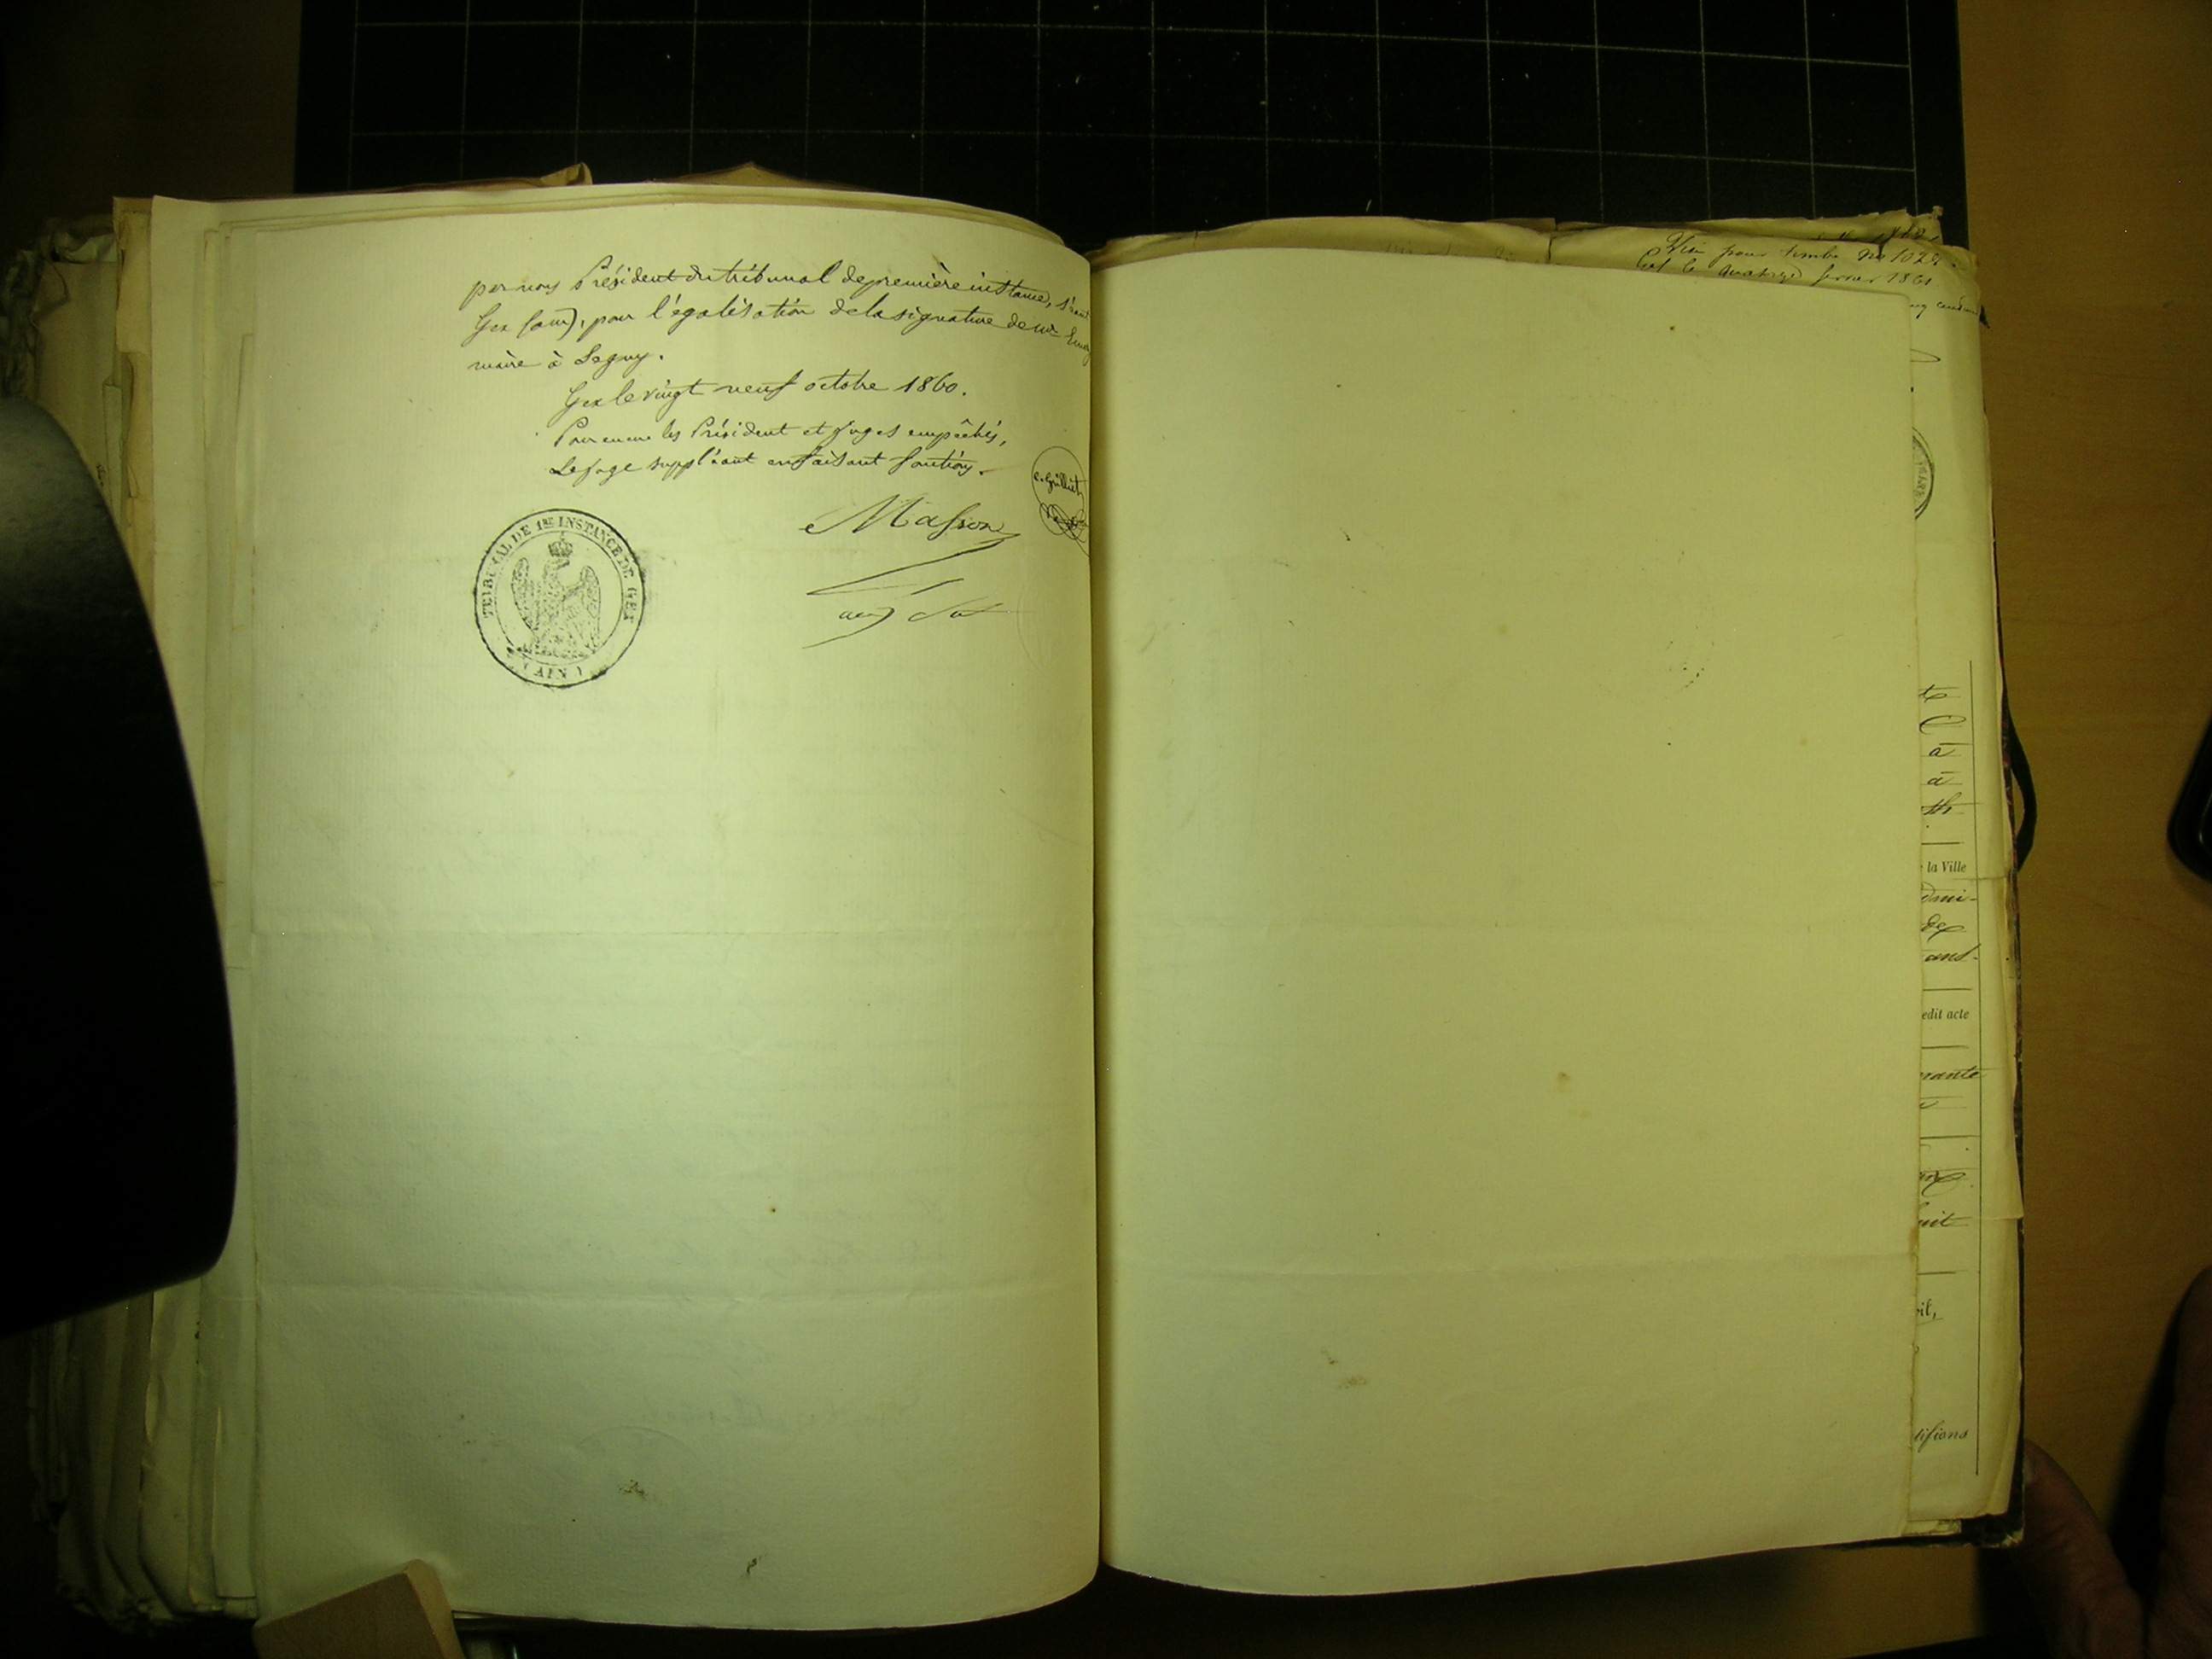 par nous Président du tribunal de première instance, séant
Gex (ain), pour légalisation de la signature de Mr
maire à Segny.
Gex le vingt neuf octobre 1860.
Pour les Président et juges empêchés,
Le juge suppléant en faisant fonction.
Masson
TRIBUNAL DE 1RE INSTANCE DE GEX
(AIN)
Visa pour timbre no 1022
le quatorze février 1861
te
à
à
la Ville
de
ans.
edit acte
rante
uit
vil,
tifions